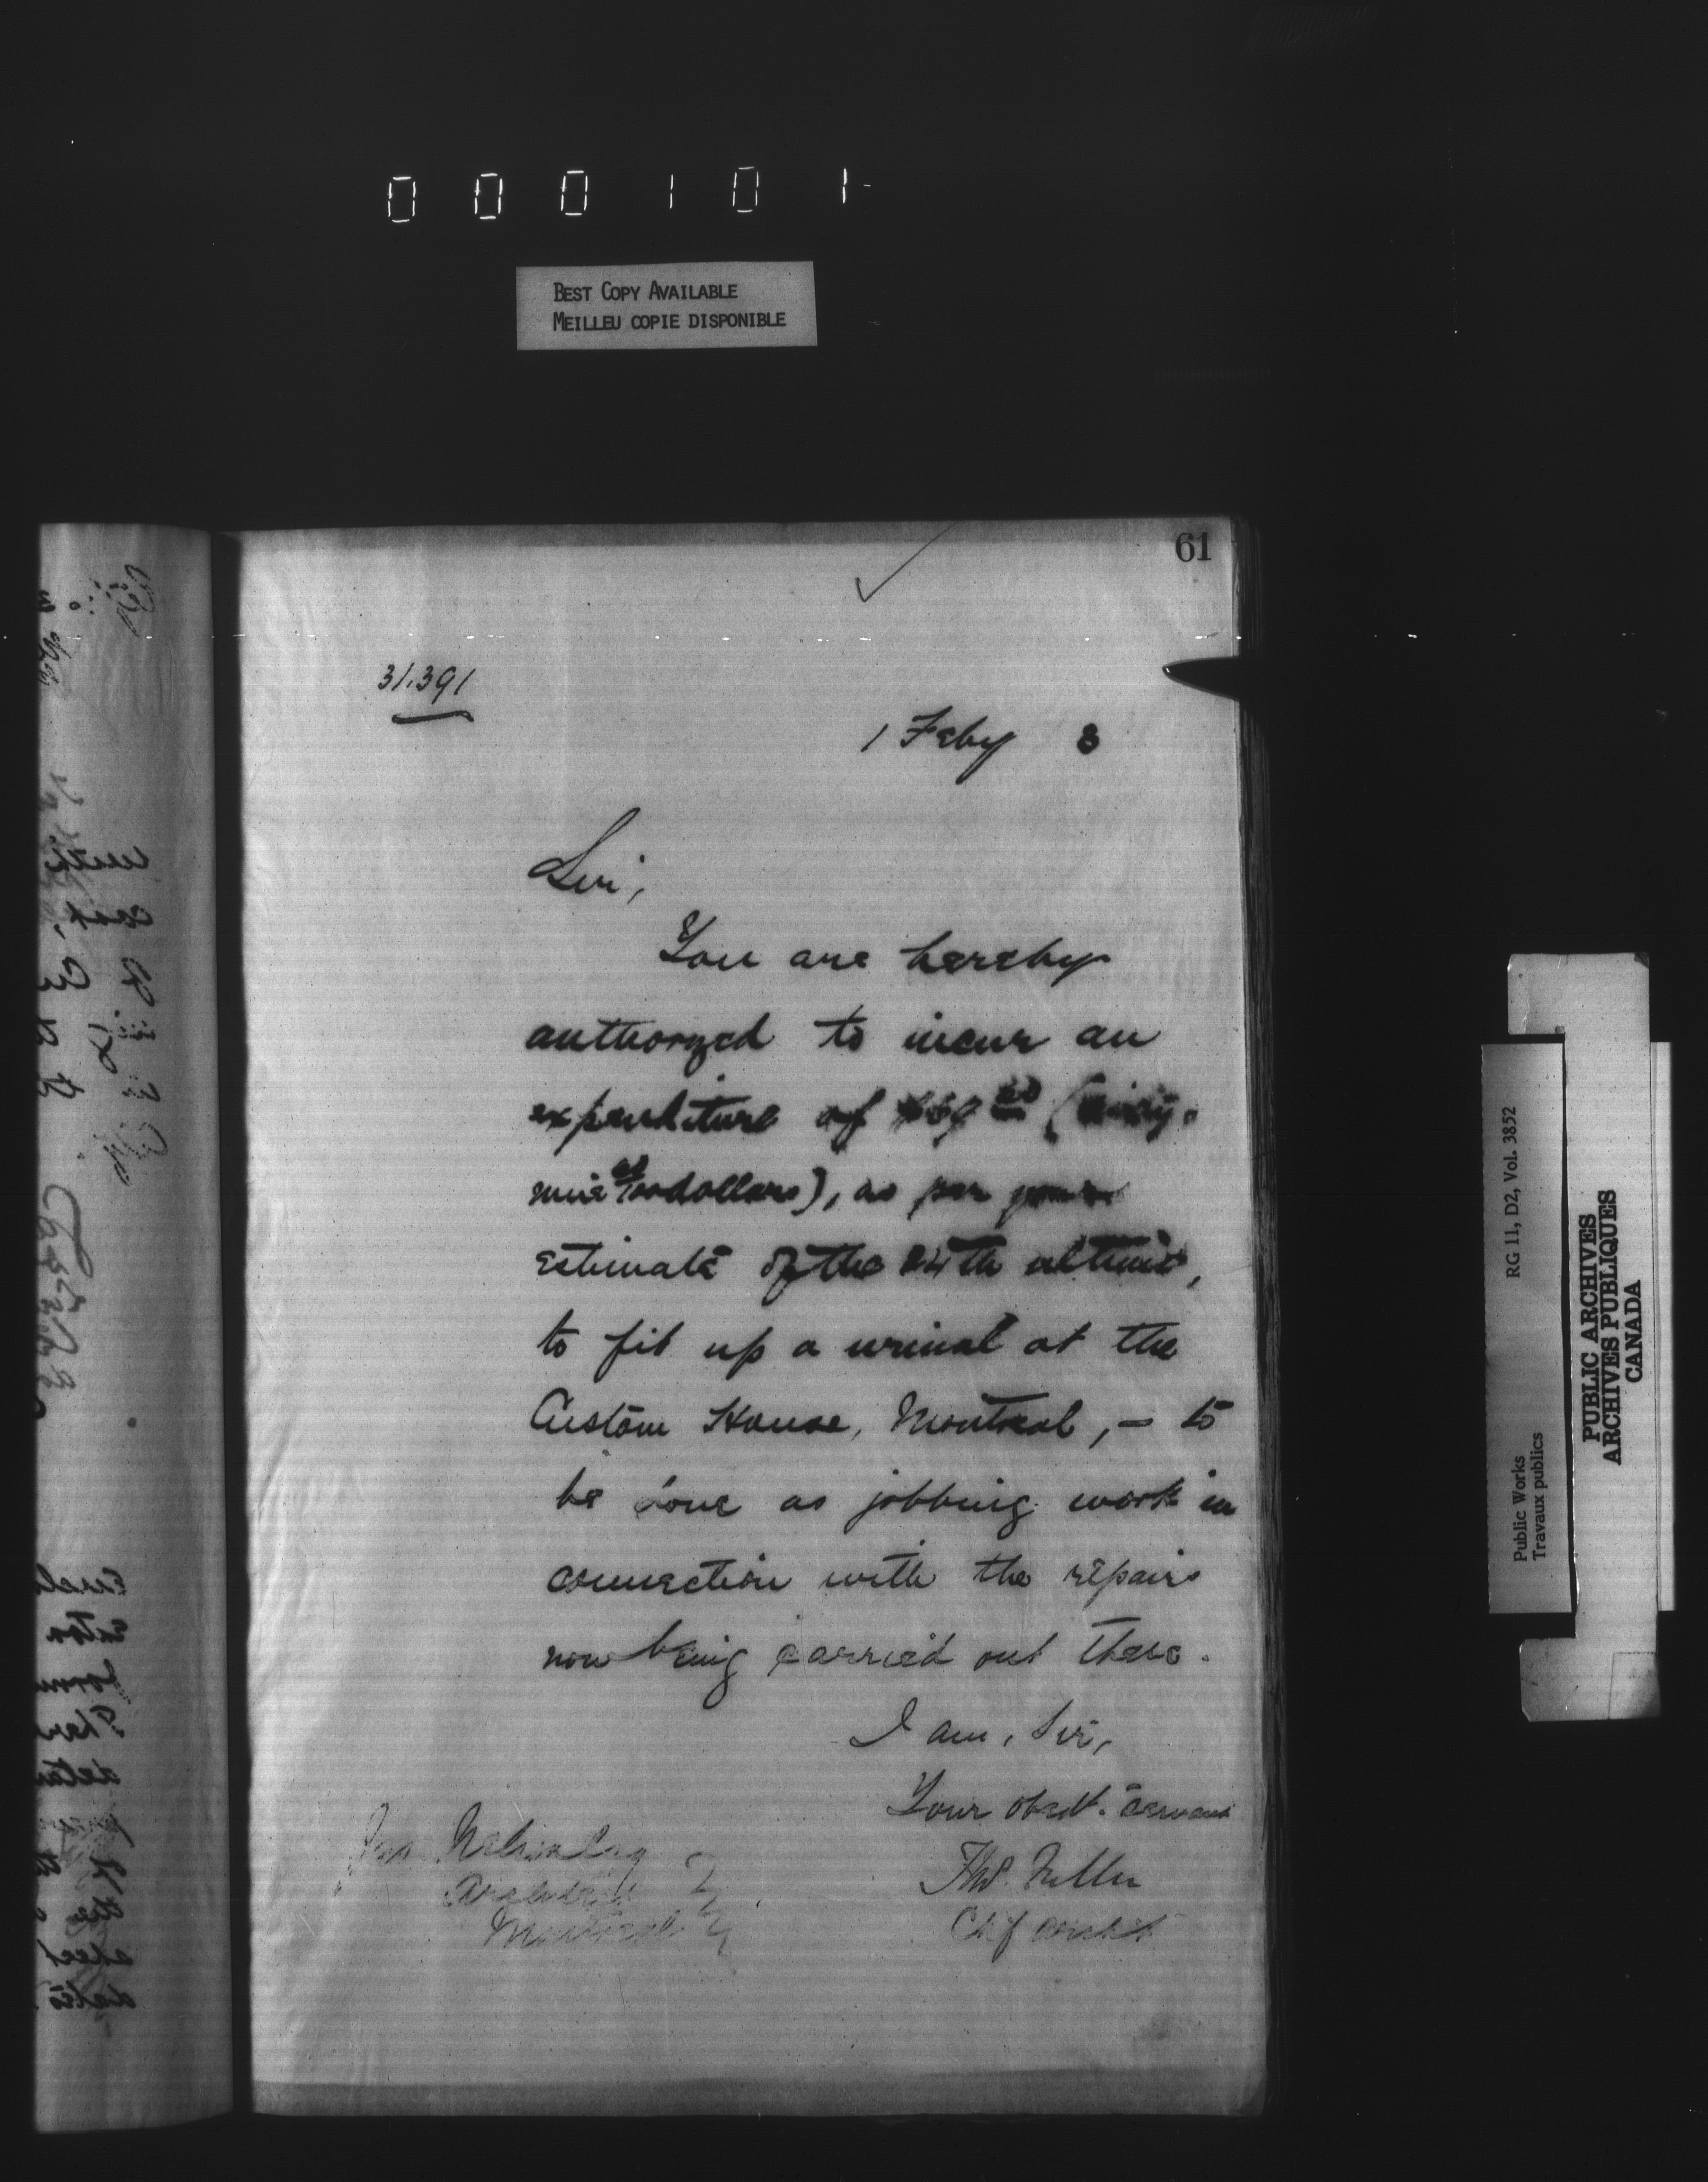 000101
BEST COPY AVAILABLE
MEILLEU COPIE DISPONIBLE
61
31.391
1 Feby 3
Sir,
You are hereby
authorized to incur an
expenditure of
nine /100 dollars), as per
estimate of the 24th ultimo,
to fit up a urinal at the
Custom House, Montreal, – to
be done as jobbing work in
connection with the repairs
now being carried out there.
I am, Sir,
Your obedt. servant
Thos. Fuller
Chf Archt
Jas Nelson Esq
Architect
Montreal
RG 11, D2, Vol. 3852
Public Works
Travaux publics
PUBLIC ARCHIVES
ARCHIVES PUBLIQUES
CANADA